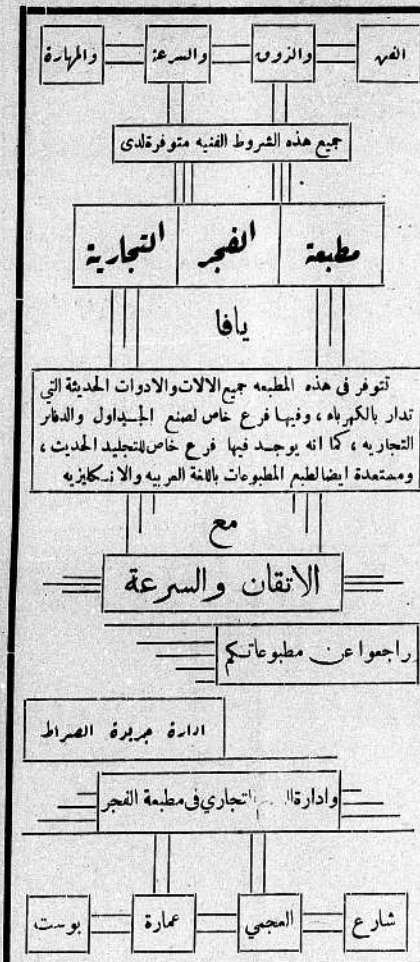 الفن والذوق والسرعة والمهارة
جميع هذه الشروط الفنيه متوفرة لدى
مطبعة الفجر التجارية
يافا
تتوفر في هذه المطبعه جميع الالات والادوات الحديثة التي
تدار بالكهرباء ، وفيها فرع خاص لصنع الجداول والدفاتر
التجاريه ، كما انه يوجد فيها فرع خاص للتجليد الحديث ،
ومستعدة ايضا لطبع المطبوعات باللغة العربيه والانكليزيه
مع
الاتقان والسرعة
راجعوا عن مطبوعاتكم
ادارة جريدة الصراط
وادارة التجاري في مطبعة الفجر
شارع العجمي عمارة بوست